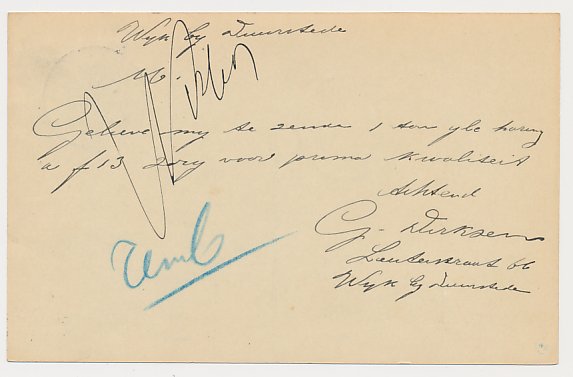 Wyk by Duurstede
M.
Gelieve my te zende 1 ton yle haring
a f 13 zorg voor prima kwaliteit
Achtend
G. Dirksen
66
Wyk by Duurstede